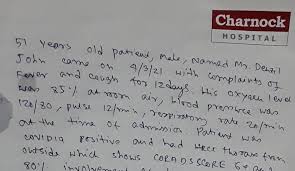 Charnock
HOSPITAL
57 years old patient, Male, Named Mr. Denzil
John came on 4/3/21 with complaints of
Fever and cough for 12 days. His oxygen level
was 85% at room air, blood pressure was
120/80, pulse 12/min, respiratory rate 20/min
at the time of admission Patient was
covid19 positive and had HRCT thorax from
outside which shows CORADS SCORE 5 and
80% involvement